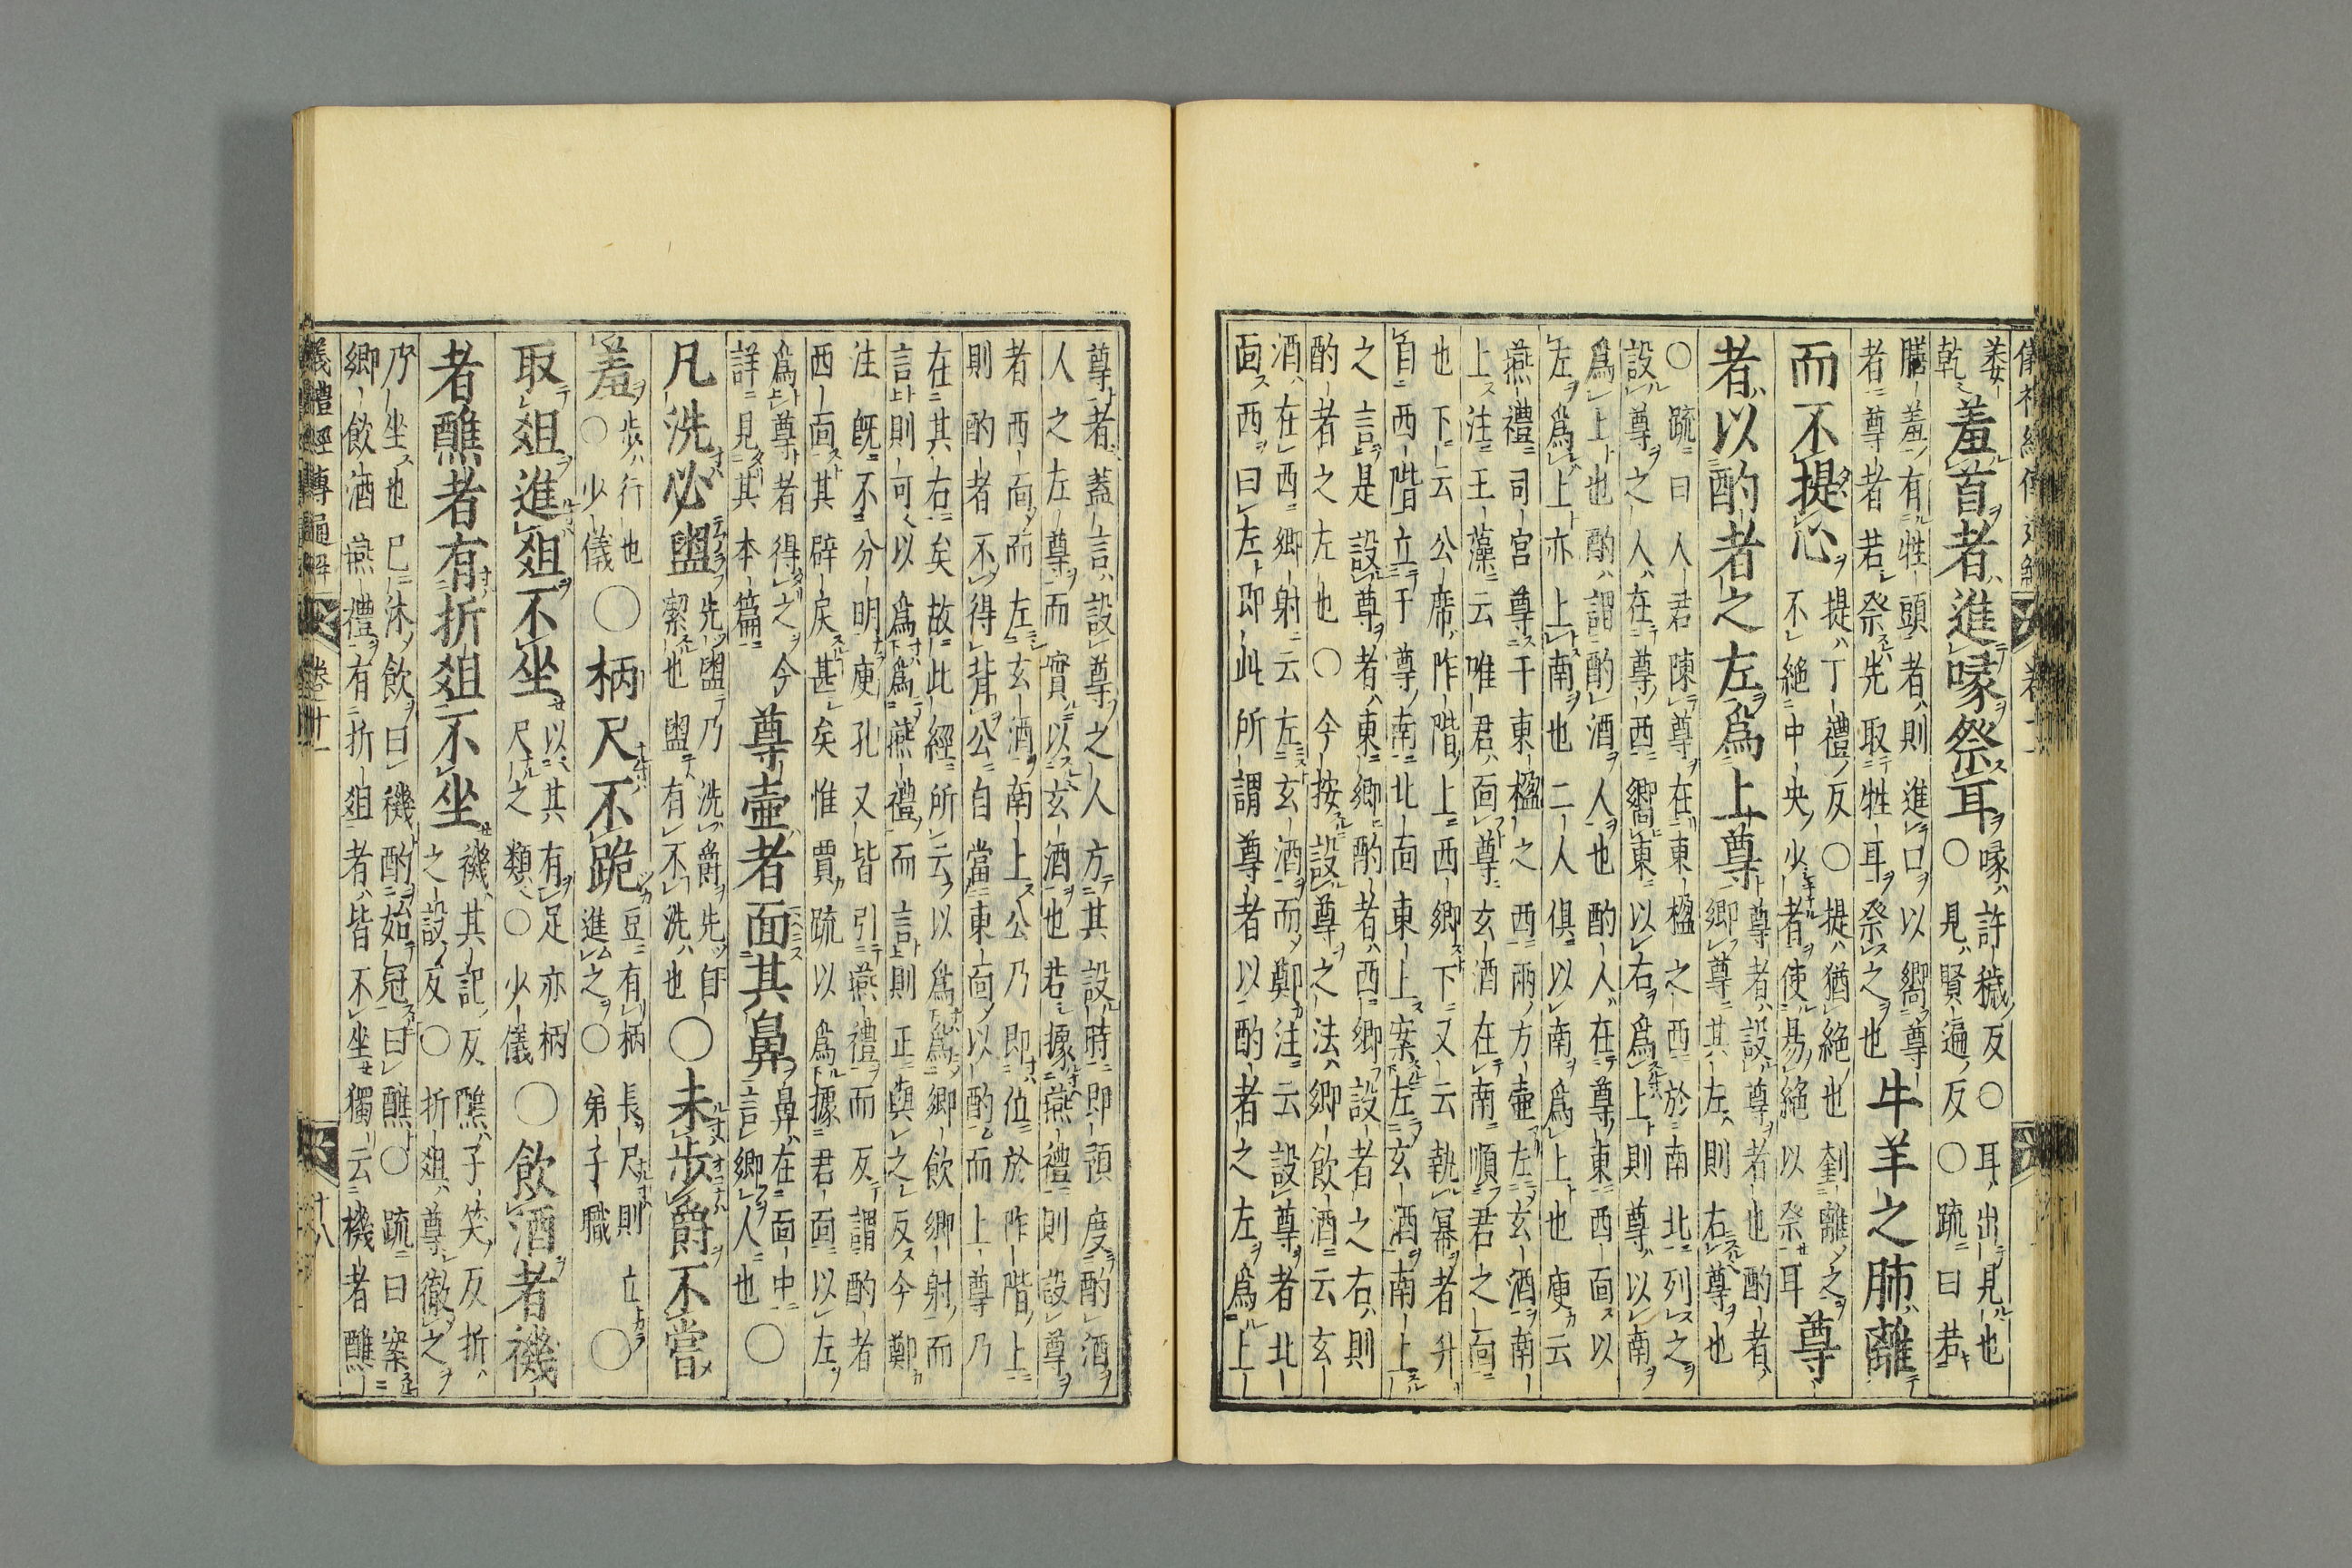 儀禮經傳通解 卷十一
萎
乾
羞首者進喙祭耳
喙許穢反○耳出見也
○見賢遍反○疏曰若
膳羞有牲頭者則進口以嚮尊
者尊者若祭先取牲耳祭之也
牛羊之肺離
而不提心
提丁禮反○提猶絶也刲離之
不絶中央少者使易絶以祭耳
尊
者以酌者之左爲上尊
尊者設尊者也酌者
鄉尊其左則右尊也
○疏曰人君陳尊在東楹之西於南北列之
設尊之人在尊西嚮東以右爲上則尊以南
爲上也酌謂酌酒人也酌人在尊東西面以
左爲上亦上南也二人俱以南爲上也庾云
燕禮司宮尊于東楹之西兩方壺左玄酒南
上注王藻云唯君面尊玄酒在南順君之面
也下云公席阼階上西鄉下又云執冪者升
自西階立于尊南北面東上案左玄酒南上
之言是設尊者東鄉酌者西鄉設者之右則
酌者之左也○今按設尊之法鄉飲酒云玄
酒在西鄉射云左玄酒而鄭注云設尊者北
面西曰左即此所謂尊者以酌者之左爲上
尊者蓋言設尊之人方其設時即預度酌酒
人之左尊而實以玄酒也若據燕禮則設尊
者西面而左玄酒南上公乃即位於阼階上
則酌者不得背公自當東面以酌而上尊乃
在其右矣故此經所云以爲爲鄉飲鄉射而
言則可以爲爲燕禮而言則正與之反今鄭
注既不分明庾孔又皆引燕禮而反謂酌者
西面其辟戾甚矣惟賈疏以爲據君面以左
爲尊者得之今
詳見其本篇
尊壺者面其鼻
鼻在面中
言鄉人也
○
凡洗必盥
先盥乃洗爵先自
絜也盥有不洗也
○未步爵不嘗
羞
步行也
○少儀
○柄尺不跪
豆有柄長尺則立
進之○弟子職
○
取俎進俎不坐
以其有足亦柄
尺之類○少儀
○飲酒者禨
者醮者有折俎不坐
禨其記反醮子笑反折
之設反○折俎尊徹之
乃坐也已沐飲曰禨酌始冠曰醮○疏曰案
鄉飲酒燕禮有折俎者皆不坐獨云禨者醮
儀禮經傳通解 卷十一 十八